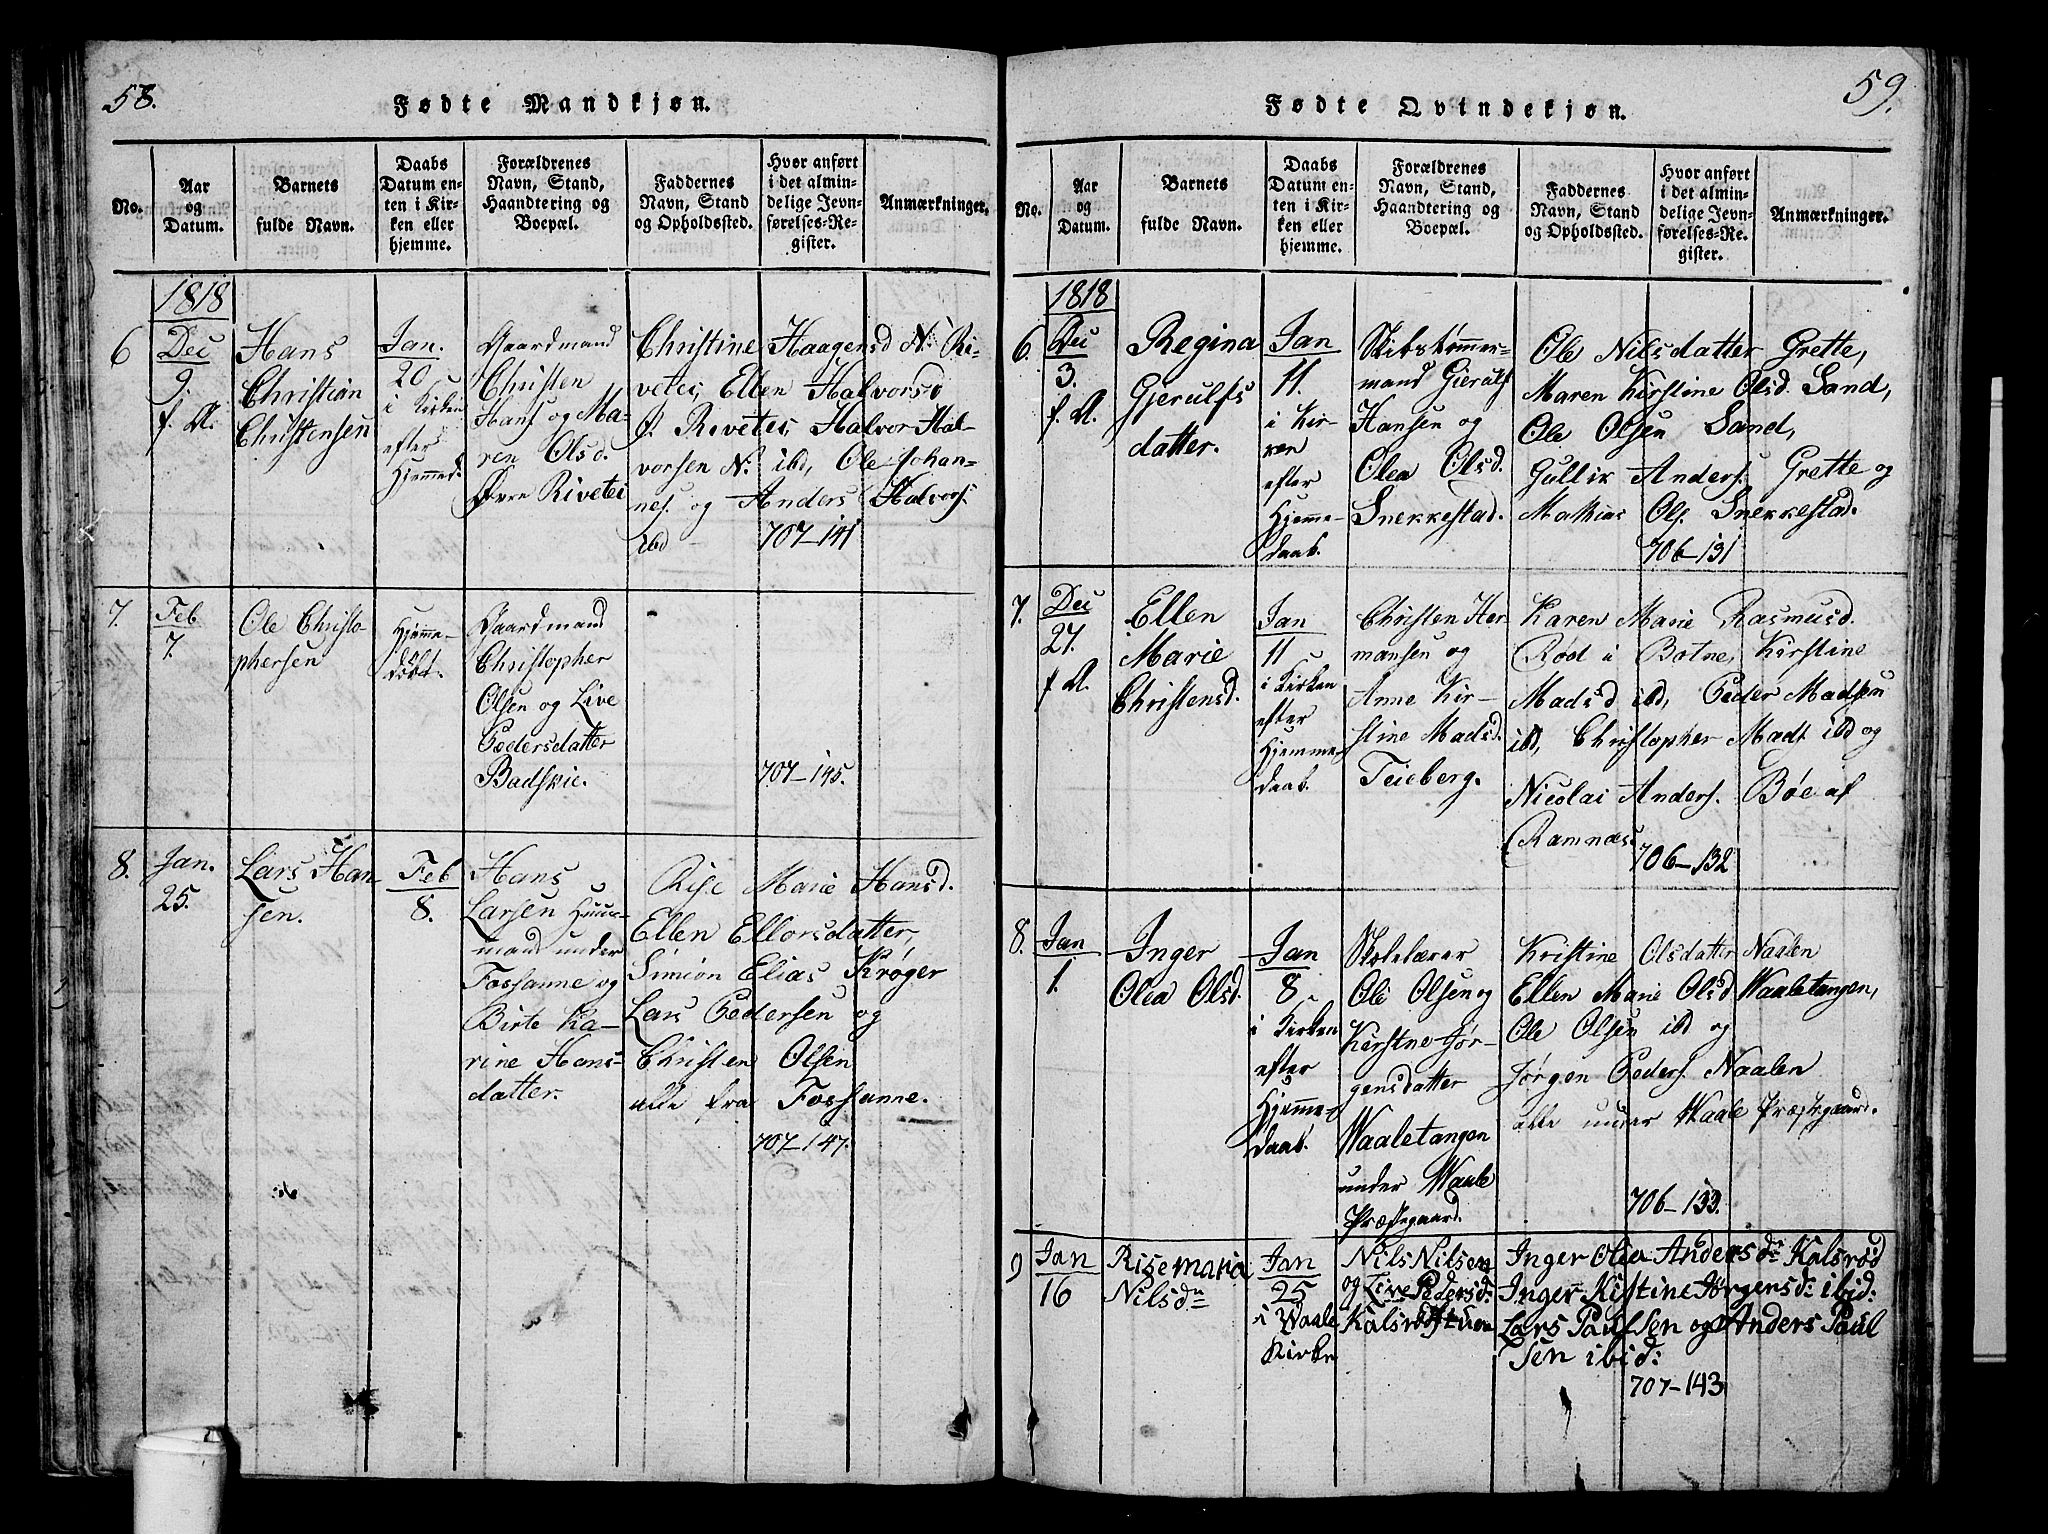 58.
Fødte Mandkjøn.
No.
Aar
og
Datum.
Barnets
fulde Navn.
Daabs
Datum en-
ten i Kir-
ken eller
hjemme.
Forældrenes
Navn, Stand,
Haandtering og
Boepæl.
Faddernes
Navn, Stand
og Opholdssted.
Hvor anført
i det almin-
delige Jevn-
førelses-Re-
gister.
Anmærkninger.
6
1818
Dec
9.
f. A.
Hans
Christian
Christensen
Jan.
20
i Kirken
efter
Hjemmed.
Gaardmand
Christen
Hans og Ma-
ren Olsd.
Øvre Rivetei
Christine Haagensd N. Ri-
vetei, Ellen Halvorsd
Ø. Rivetei, Halvor Hal-
vorsen N. ibd, Ole Johan-
nes. og Anders Halvors.
ibd
707-141
7.
Feb
7.
Ole Christo-
phersen
Hjemme-
døbt.
Gaardmand
Christopher
Olsen og Live
Pedersdatter
Badskie.
707-145.
8.
Jan.
25.
Lars Han
sen.
Feb
8.
Hans
Larsen Huus-
mand under
Fossanne og
Birte Ka-
rine Hans-
datter.
Rise Marie Hansd.
Ellen Ellorsdatter,
Simion Elias Krøger
Lars Pedersen og
Christen Olsen
alle fra Fossanne.
707-147.
59.
Fødte Qvindekjøn.
No.
Aar
og
Datum.
Barnets
fulde Navn.
Daabs
Datum en-
ten i Kir-
ken eller
hjemme.
Forældrenes
Navn, Stand,
Haandtering og
Boepæl.
Faddernes
Navn, Stand
og Opholdssted.
Hvor anført
i det almin-
delige Jevn-
førelses-Re-
gister.
Anmærkninger.
6.
1818
Dec
3.
f. A.
Regina
Gjerulfs
datter.
Jan
11.
i Kir-
ken
efter
Hjemme-
daab.
Skibstømmer-
mand Gierulf
Hansen og
Olea Olsd.
Snekkestad.
Ole Nilsdatter Grette,
Maren Kirstine Olsd. Sand,
Ole Olsen Sand,
Gullik Anders. Grette og
Mathias Ols. Snekkestad.
706-131
7.
Dec
27.
f A.
Ellen
Marie
Christensd.
Jan
11
i Kirken
efter
Hjemme-
daab.
Christen Her
mansen og
Anne Kir-
stine Madsd.
Teieberg.
Karen Marie Rasmusd.
Rød i Botne, Kirstine
Madsd ibd, Peder Madsen
ibd, Christopher Mads ibd og
Nicolai Anders. Bøe af
Ramnæs.
706-132
8.
Jan
1.
Inger
Olea Olsd.
Jan
8
i Kirken
efter
Hjemme-
daab.
Skolelærer
Ole Olsen og
Kirstne Jør-
gensdatter
Waaletangen
under Waale
Præstegaard.
Kristine Olsdatter Naalen
Ellen Marie Olsd Waaletangen,
Ole Olsen ibd og
Jørgen Peders. Naalen
alle under Waale Præstgaard.
706-133.
9
Jan
16
Risemaria
Nilsdn
Jan
25
i Waale
Kirke
Nils Nilsen
og Live Pedersd:
Kalsrødstuen
Inger Olea Andersdn Kalsrød
Inger Kistine Jørgensd: ibid:
Lars Paulsen og Anders Paul
sen ibid:
707-143